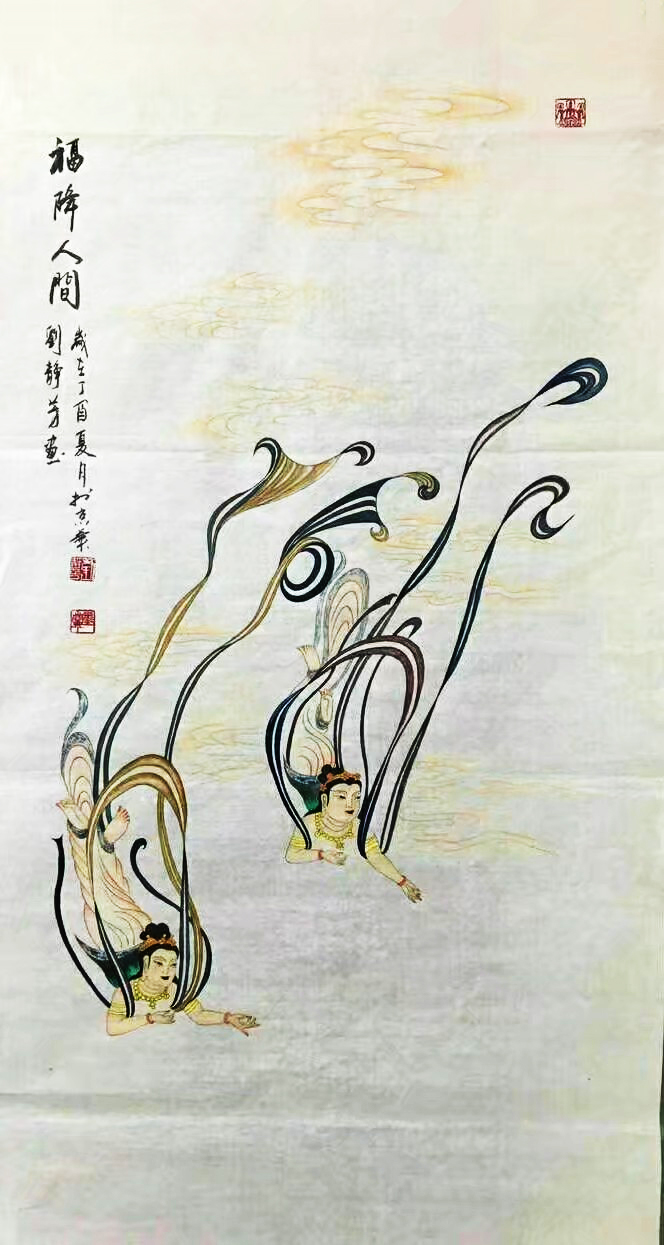 福降人間
歲在丁酉夏月於京華
劉靜芳畫